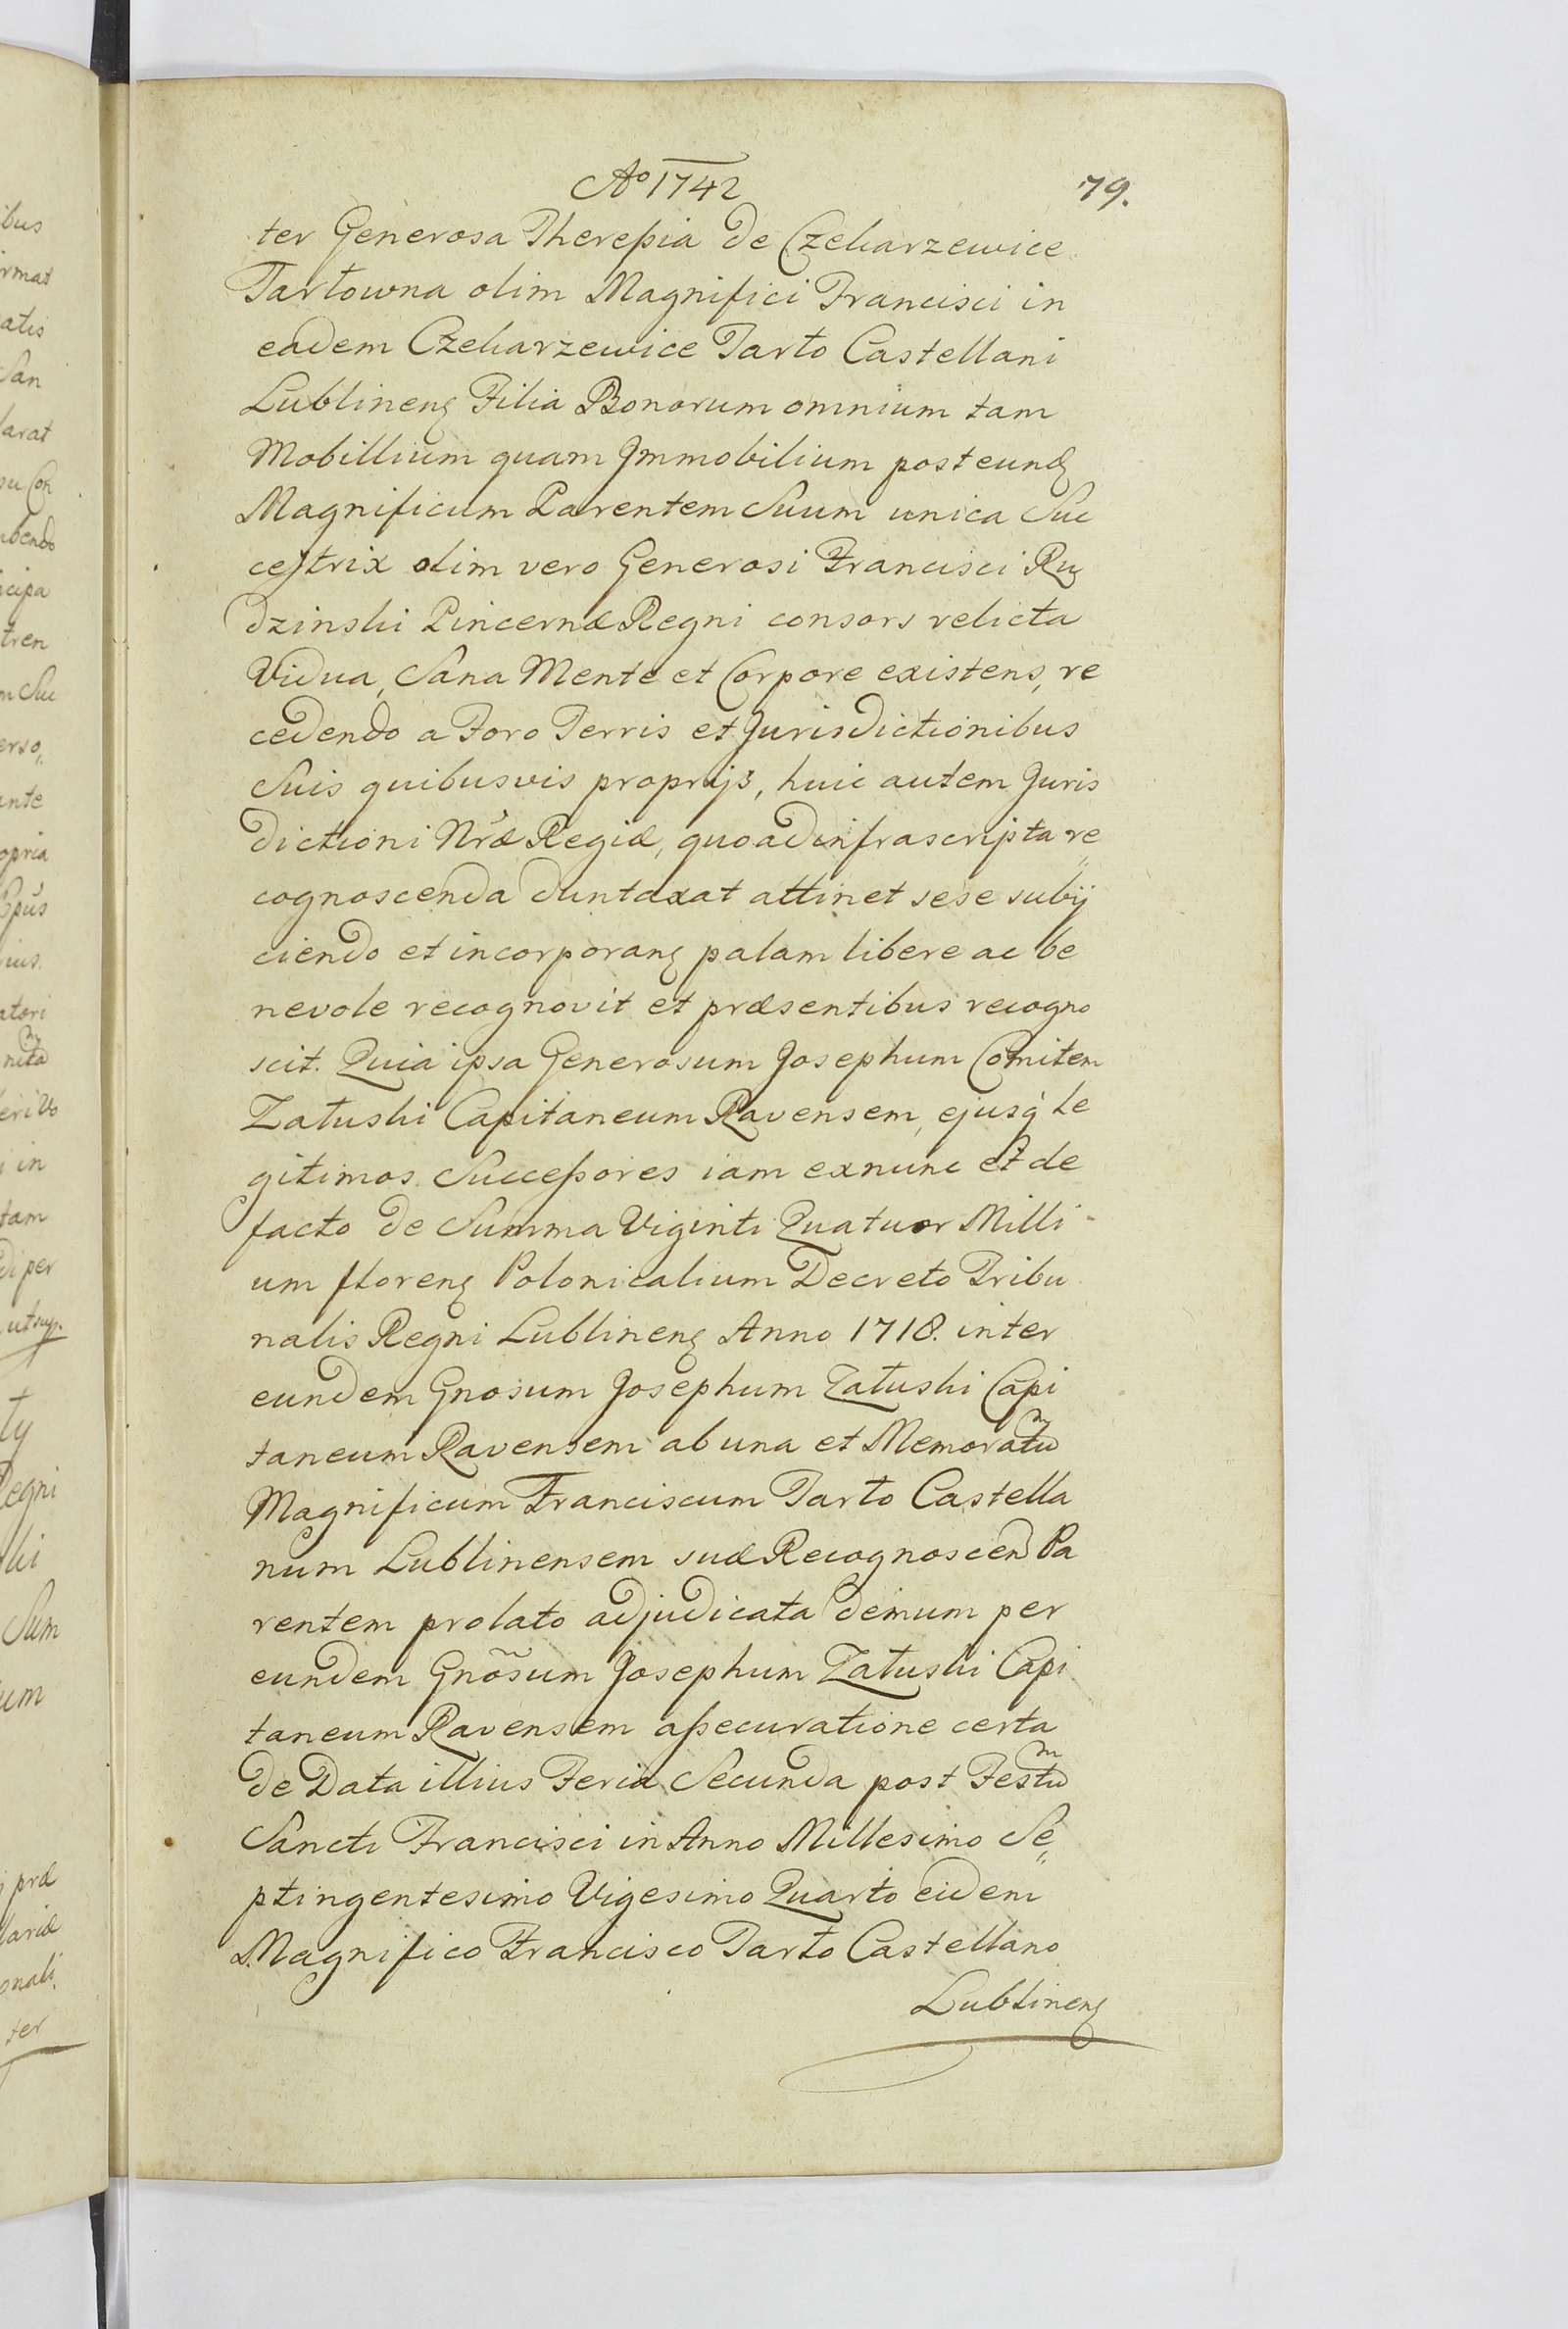 Aº 1742
79.
ter Generosa Theressia de Czekarzewice
Tartowna olim Magnifici Francisci in
eadem Czekarzewice Tarło Castellani
Lublinenę Filia Bonorum omnium tam
Mobillium quam Immobilium post eundę
Magnificum Parentem Suum unica Suc
cestrix olim vero Generosi Francisci Ru
dzinski Pincernæ Regni consors relicta
Vidua, Sana Mente et Corpore existens, re
cedendo a Foro Terris et Jurisdictionibus
Suis quibusvis proprijs, huic autem Juris
dictioni Nræ Regiæ, quoad infrascripta re„
cognoscenda duntaxat attinet sese subij
ciendo et incorporanę palam libere ac be
nevole recognovit et præsentibus recogno
scit. Quia ipsa Generosum Josephum Comitem
Załuski Capitaneum Ravensem, ejusq̃ le
gitimos Successores iam exnunc et de
facto de Summa Viginti Quatuor Milli-
um florenę Polonicalium Decreto Tribu
nalis Regni Lublinenę Anno 1718. inter
eundem Gnosum Josephum Załuski Capi
taneum Ravensem ab una et Memoratũ
Magnificum Franciscum Tarło Castella
num Lublinensem suæ Recognoscen Pa
rentem prolato adjudicata demum per
eundem Gnõsum Josephum Załuski Capi
taneum Ravensem assecuratione certa
de Data illius Feria Secunda post Festũ
Sancti Francisci in Anno Millesimo Se„
ptingentesimo Vigesimo Quarto eidem
Magnifico Francisco Tarło Castellano
Lublinenę